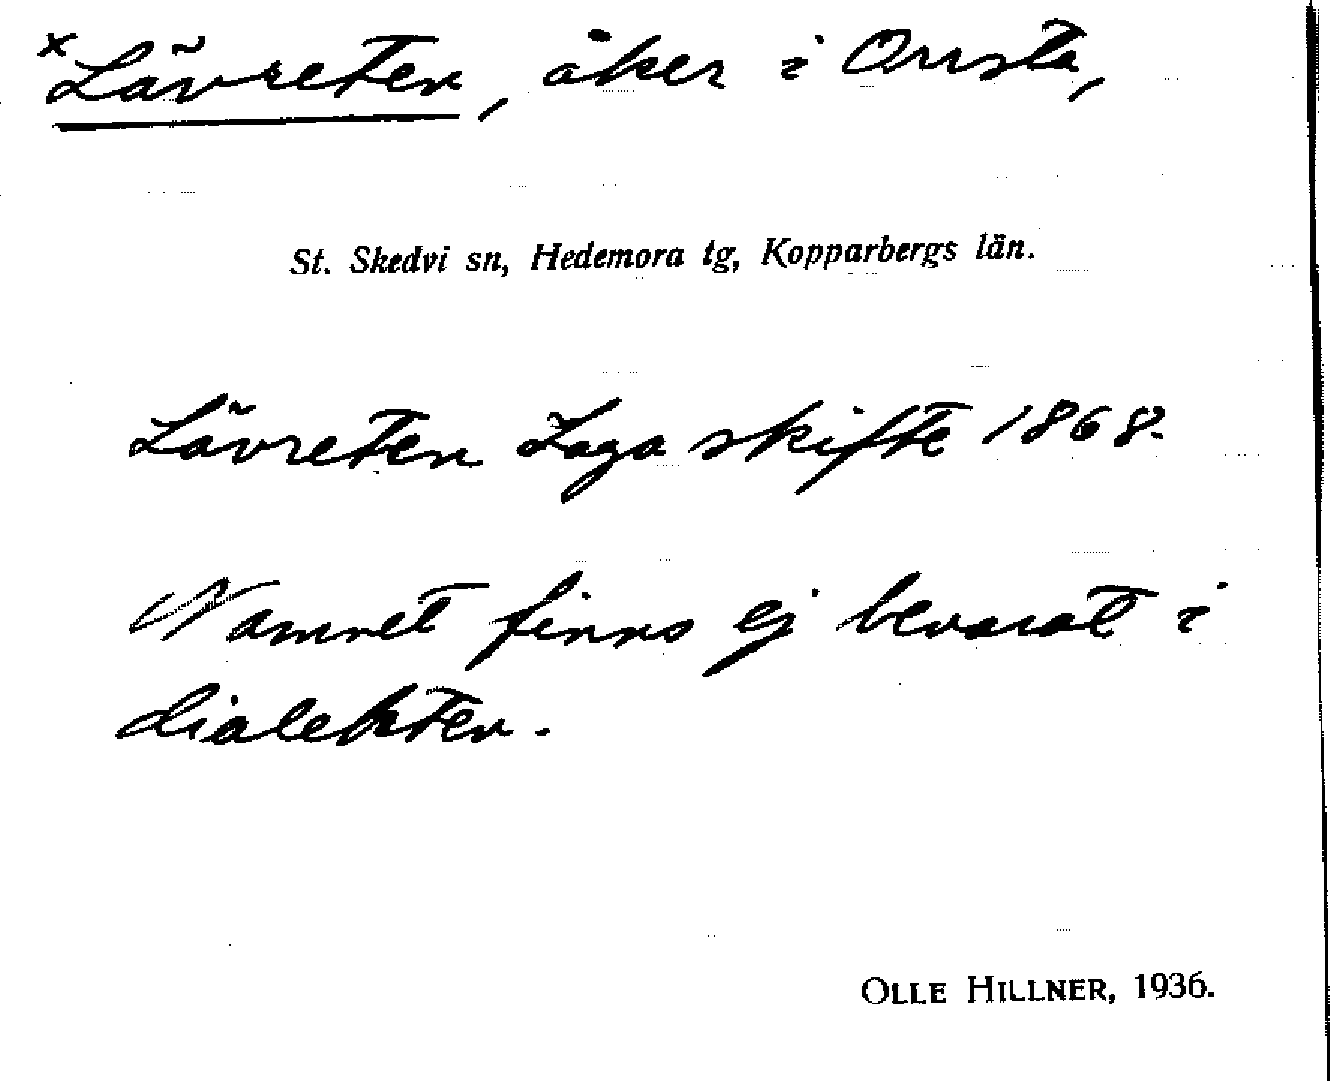 ˣLävreten, åker i Orrsta,
St. Skedvi sn, Hedemora tg, Kopparbergs län.
Lävreten Laga skifte 1868.
Namnet finns ej bevarat i
dialekten.
OLLE HILLNER, 1936.